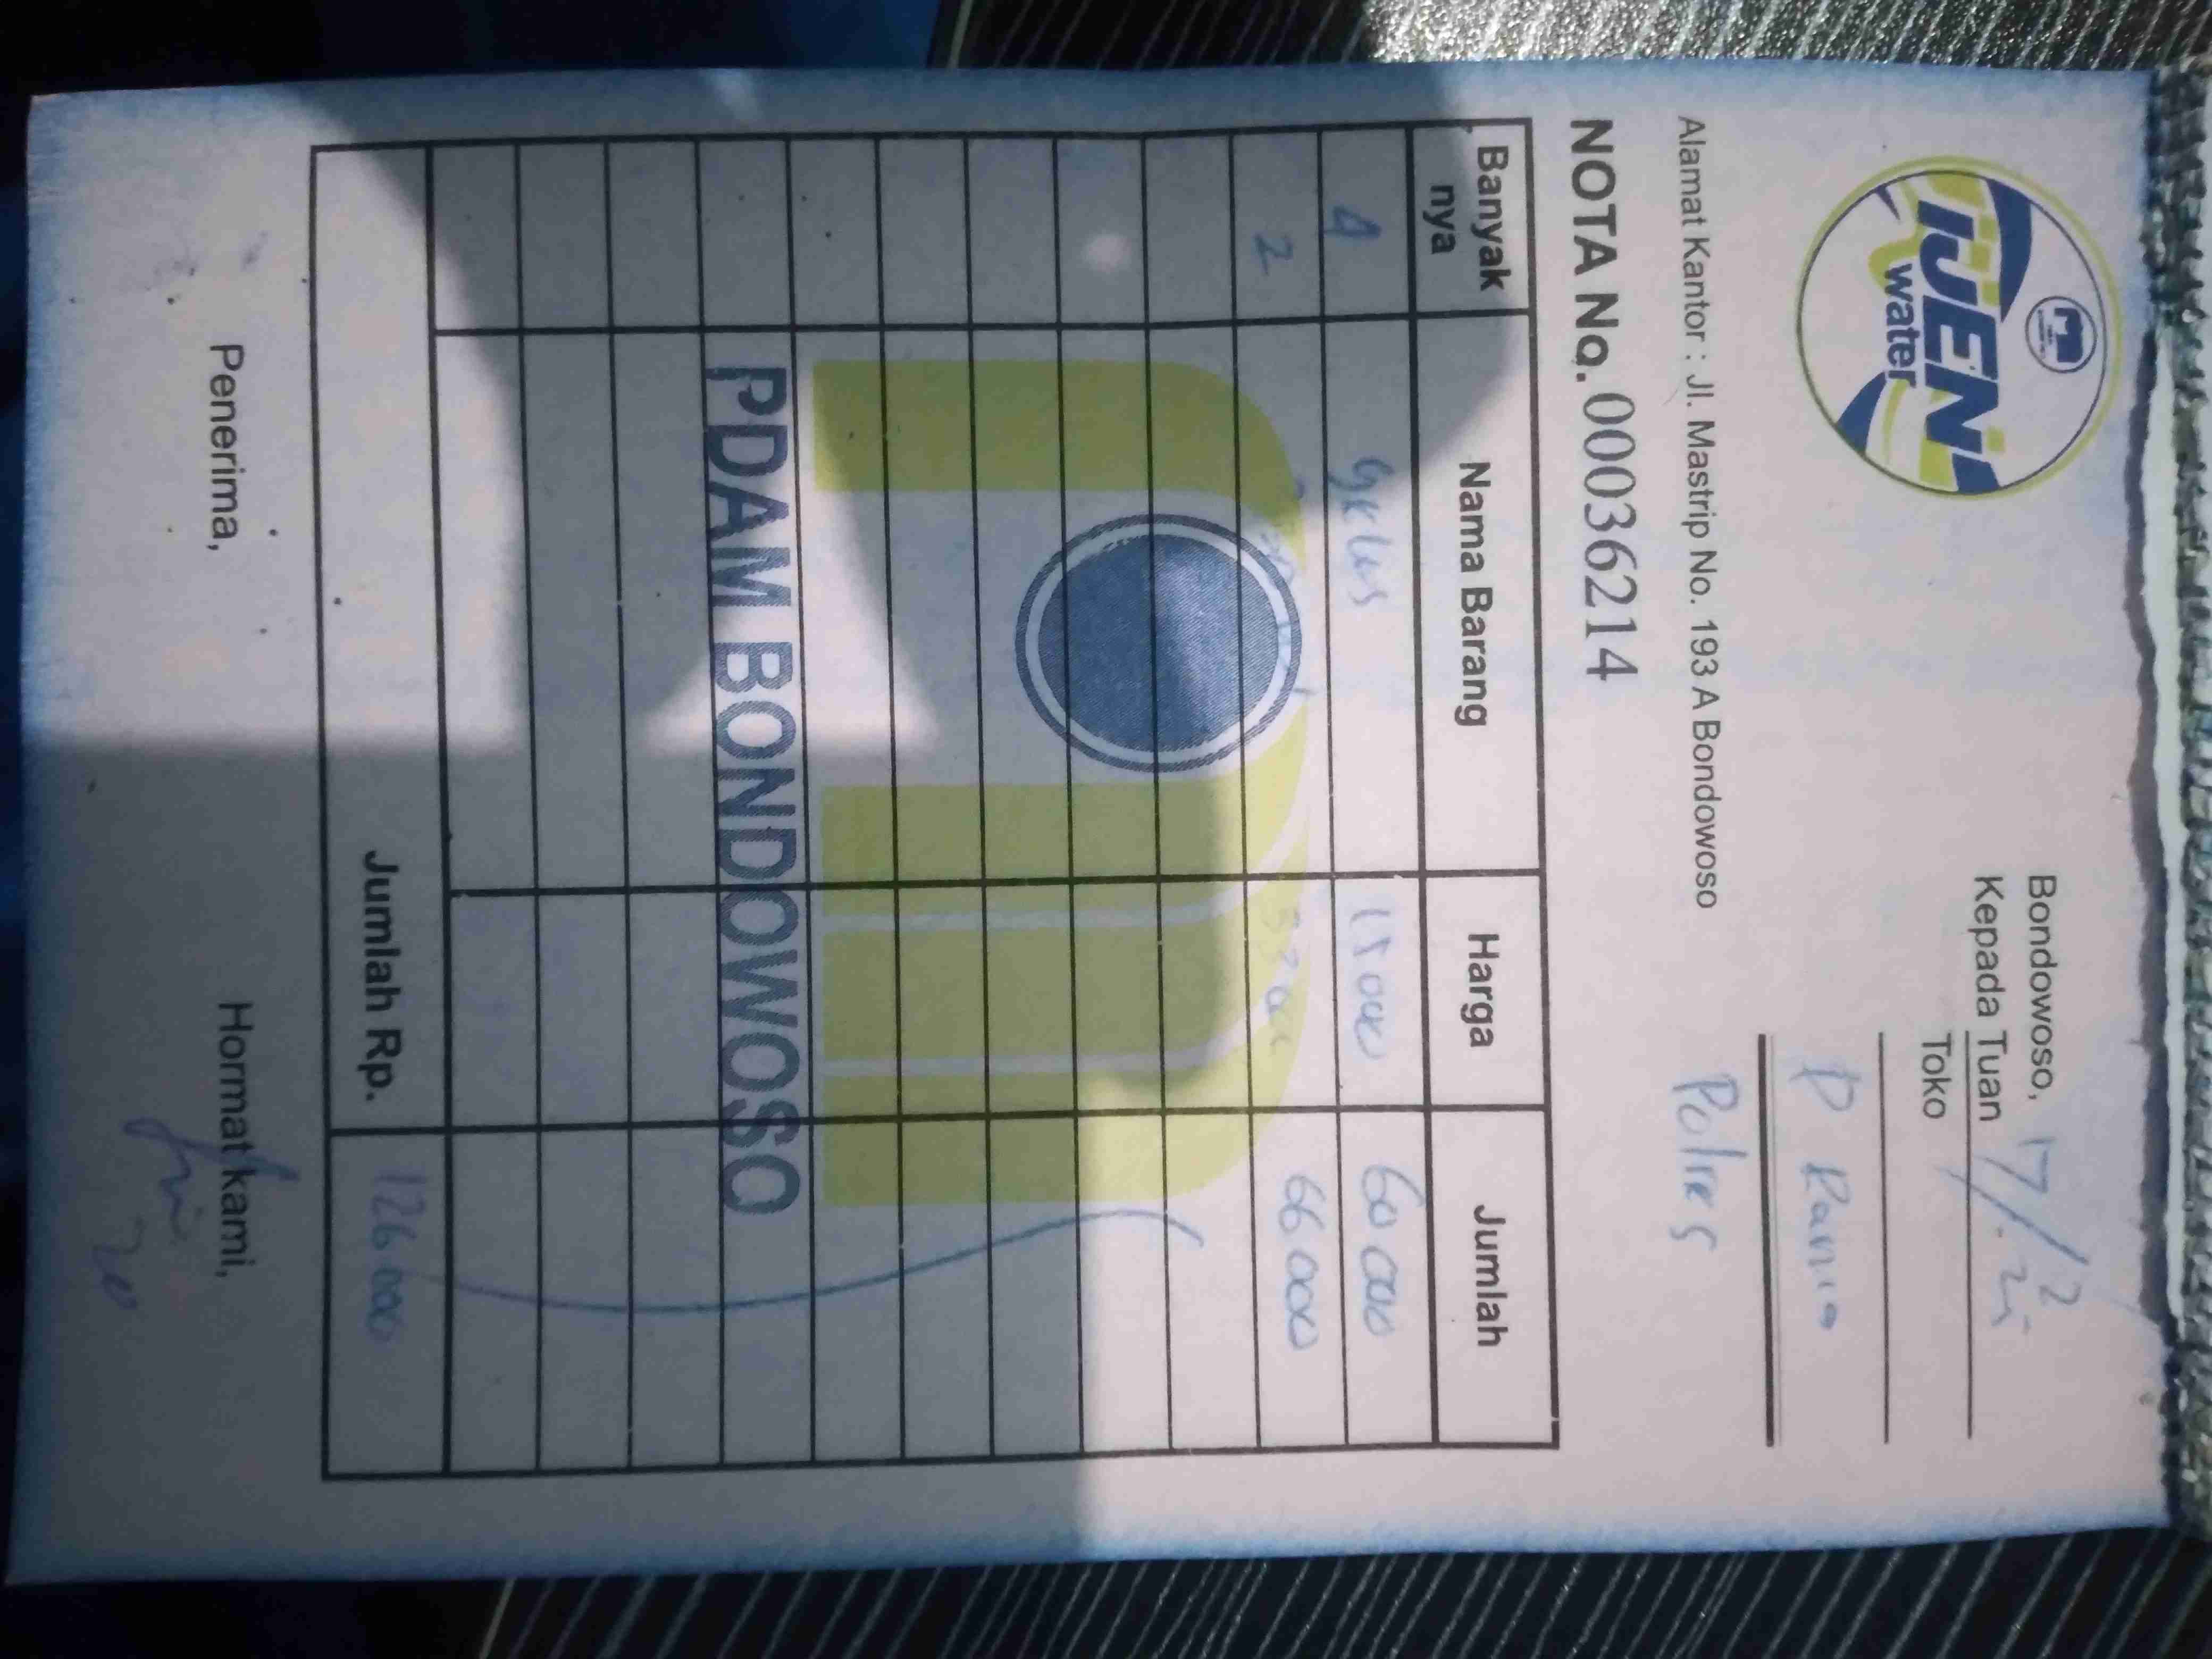 IJEN
water
Bondowoso, 17/2
Kepada Tuan
Toko
P Rania
Polres
Alamat Kantor : Jl. Mastrip No. 193 A Bondowoso
NOTA No. 00036214
Banyak nya Nama Barang Harga Jumlah
4 gelas 15 000 60 000
2 66 000
PDAM BONDOWOSO
Jumlah Rp. 126 000
Penerima, Hormat kami,